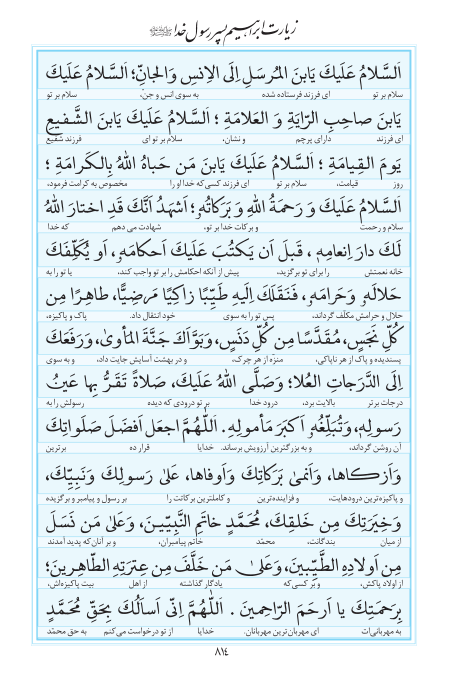 زیارت ابراهیم پسر رسول خدا ﷺ
اَلسَّلامُ عَلَيكَ يَابنَ المُرسَلِ اِلَى الاِنسِ وَالجانِّ؛ اَلسَّلامُ عَلَيكَ
سلام بر تو ای فرزند فرستاده شده به سوی انس و جن، سلام بر تو
يَابنَ صاحِبِ الرّايَةِ وَ العَلامَةِ ؛ اَلسَّلامُ عَلَيكَ يَابنَ الشَّفيعِ
ای فرزند دارای پرچم و نشان، سلام بر تو ای فرزند شفیع
يَومَ القِيامَةِ ؛ اَلسَّلامُ عَلَيكَ يَابنَ مَن حَباهُ اللهُ بِالكَرامَةِ ؛
روز قیامت، سلام بر تو ای فرزند کسی که خدا او را مخصوص به کرامت فرمود،
اَلسَّلامُ عَلَيكَ وَ رَحمَةُ اللهِ وَ بَرَكاتُهُ؛ اَشهَدُ اَنَّكَ قَدِ اختارَ اللهُ
سلام و رحمت و برکات خدا بر تو، شهادت می دهم که خدا
لَكَ دارَ اِنعامِهِ ، قَبلَ اَن يَكتُبَ عَلَيكَ اَحكامَهُ، اَو يُكَلِّفَكَ
خانه نعمتش را برای تو برگزید، پیش از آنکه احکامش را بر تو واجب کند، یا تو را به
حَلالَهُ وَ حَرامَهُ ، فَنَقَلَكَ اِلَيهِ طَيِّبًا زاكِيًا مَرضِيًّا، طاهِرًا مِن
حلال و حرامش مکلف گرداند، پس تو را به سوی خود انتقال داد. پاک و پاکیزه،
كُلِّ نَجَسٍ، مُقَدَّسًا مِن كُلِّ دَنَسٍ، وَبَوَّاَكَ جَنَّةَ المَأوىٰ، وَرَفَعَكَ
پسندیده و پاک از هر ناپاکی، منزه از هر چرک، و در بهشت آسایش جایت داد، و به سوی
اِلَى الدَّرَجاتِ العُلا؛ وَصَلَّى اللهُ عَلَيكَ، صَلاةً تَقَرُّ بِها عَينُ
درجات برتر بالایت برد، درود خدا بر تو درودی که دیده رسولش را به
رَسولِهِ، وَتُبَلِّغُهُ اَكبَرَ مَأمولِهِ. اَللّٰهُمَّ اجعَل اَفضَلَ صَلَواتِكَ
آن روشن گرداند، و به بزرگترین آرزویش برساند. خدایا قرار ده برترین
وَاَزكاها، وَاَنمىٰ بَرَكاتِكَ وَاَوفاها، عَلىٰ رَسولِكَ وَنَبِيِّكَ،
و پاکیزه ترین درودهایت، و فزاینده ترین و کاملترین برکاتت را بر رسول و پیامبر و برگزیده
وَخِيَرَتِكَ مِن خَلقِكَ، مُحَمَّدٍ خاتَمِ النَّبِيّينَ، وَعَلىٰ مَن نَسَلَ
از میان بندگانت، محمّد خاتم پیامبران، و بر آنان که پدید آمدند
مِن اَولادِهِ الطَّيِّبينَ، وَعَلىٰ مَن خَلَّفَ مِن عِترَتِهِ الطّاهِرينَ؛
از اولاد پاکش، و بر کسی که یادگار گذاشته از اهل بیت پاکیزه اش،
بِرَحمَتِكَ يا اَرحَمَ الرّاحِمينَ . اَللّٰهُمَّ اِنّى اَسأَلُكَ بِحَقِّ مُحَمَّدٍ
به مهربانی ات ای مهربان ترین مهربانان. خدایا از تو درخواست می کنم به حق محمّد
٨١٤